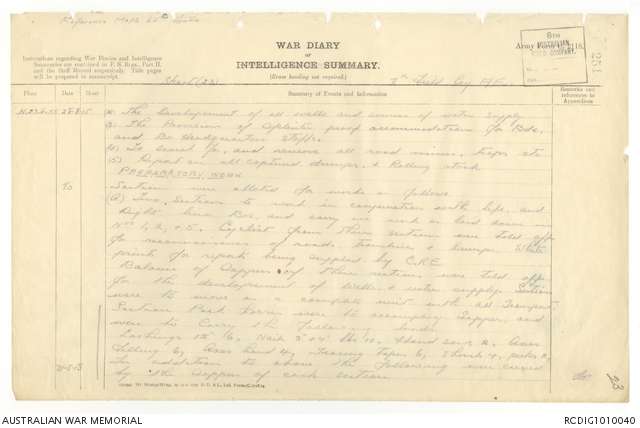 Reference Maps
WAR DIARY
or
INTELLIGENCE SUMMARY.
(Erase heading not required.)
Army Form C. 2118.
8TH
AUSTRALIAN
COMPANY
251
Instructions regarding War Diaries and Intelligence
Summaries are contained in F. S. Regs., Part II.
and the Staff Manual respectively. Title pages
will be prepared in manuscript.
Sheet (23)
Field Coy
Place
Date
Hour
Summary of Events and Information
Remarks and
references to
Appendices
(2) The Development of all wells and sources of water supply
(3) The Provision of Splinter proof accommodation for Bde.
and Bn Headquarters staffs.
(4) To search for, and remove all road mines, traps etc
(5) Report on all captured dumps, & Rolling stock
PREPARATORY WORK
To
Sections were allotted for works as follows
(a) Two Sections to work in conjunction with left, and
Right Bns, and carry out work as laid down in
Nos 1, 2, 4 & 5. Cyclist from these sections were told off
for reconnaissance of roads, tramlines & dumps.
prints for reports being supplied by CRE
Balance of Sappers of these sections were told off
for the development of Wells & water supply. Sections
were to move as a complete unit with all Transport.
Section Pack Horses were to accompany Sappers, and
were to carry the following loads
Lashings 6, Nails 3" & 4" lbs 10, Hand saws 2, Axes
felling 6, Axes hand 4, Tracing tapes 6, Shovels 4, picks 2,
In addition to above the following were carried
by the Sappers of each section
23